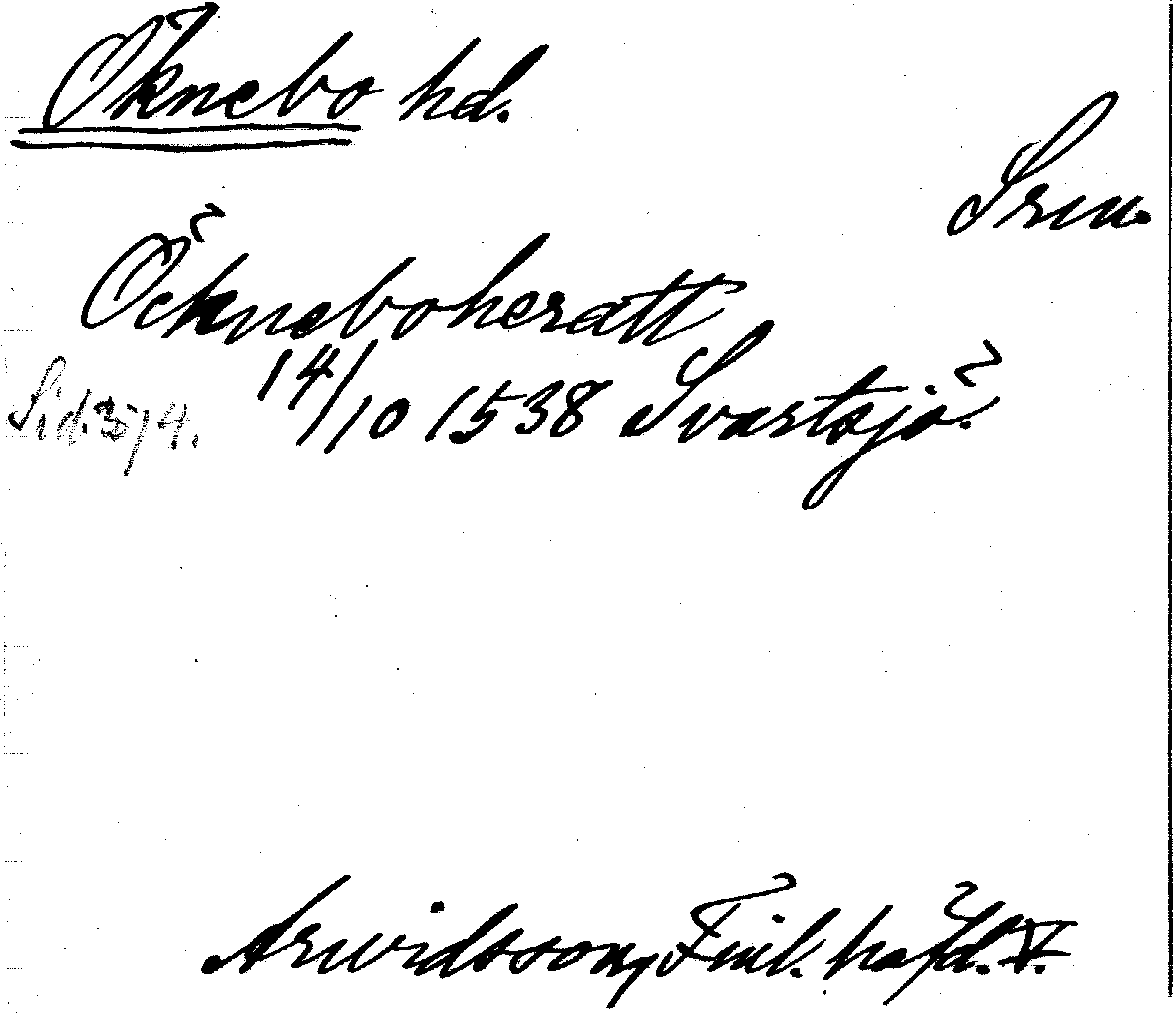 Öknebo hd.
Srm.
Öckneboheratt
14/10 1538 Svartsjö.
Sid. 374.
Arwidsson, Finl. häfd. V.